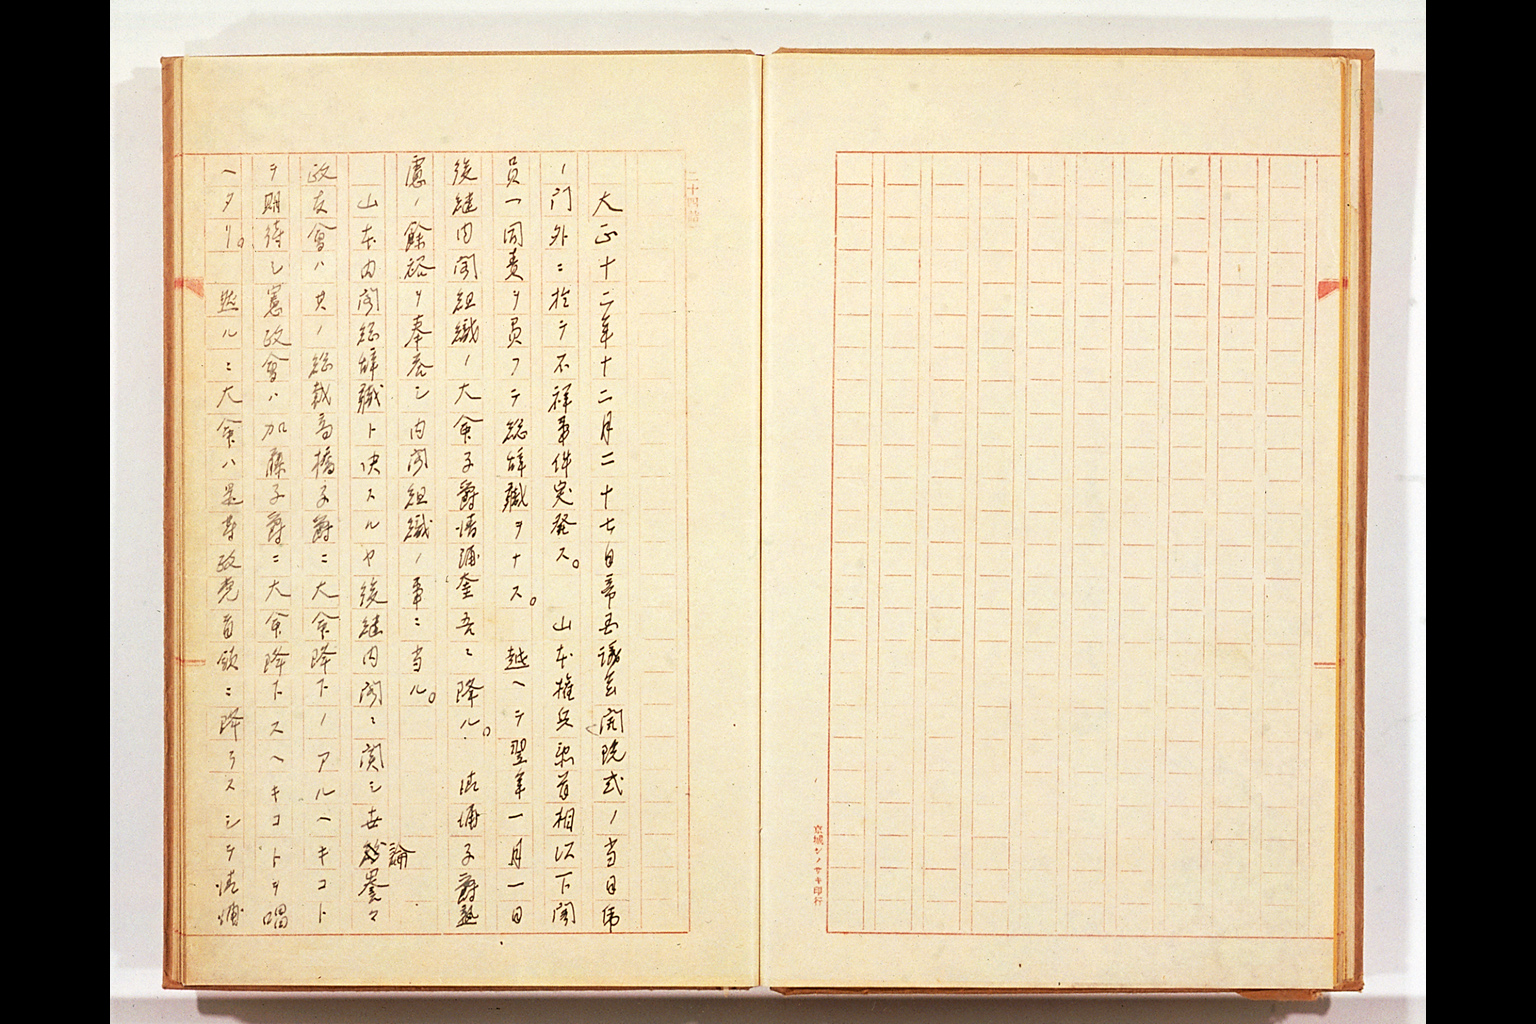 京城シノサキ印行
二十四詰
大正十二年十二月二十七日帝国議会開院式ノ当日虎
ノ門外ニ於テ不祥事件突発ス。山本権兵衛首相以下閣
員一同責ヲ負フテ総辞職ヲナス。越ヘテ翌年一月一日
後継内閣組織ノ大命子爵清浦奎吾ニ降ル。清浦子爵熟
慮ノ餘裕ヲ奉答シ内閣組織ノ事ニ当ル。
山本内閣総辞職ト決スルヤ後継内閣ニ関シ世論囂々
政友會ハ其ノ総裁高橋子爵ニ大命降下ノアルヘキコト
テ期待シ憲政會ハ加藤子爵ニ大命降下スヘキコトヲ唱
ヘタリ。然ルニ大命ハ是等政党首領ニ降ラスシテ清浦